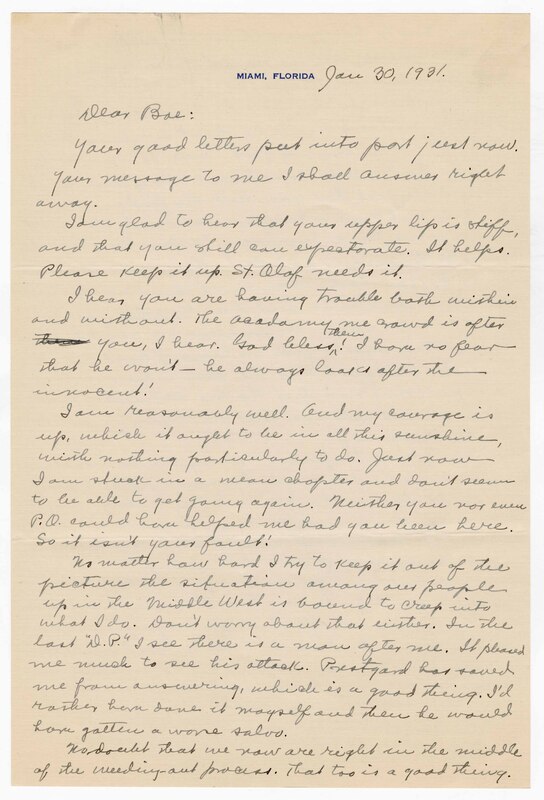 MIAMI, FLORIDA Jan 30, 1931.
Dear Boe:
Your good letters put into port just now.
Your message to me I shall answer right
away.
I am glad to hear that your upper lip is stiff,
and that you still can expectorate. It helps.
Please keep it up. St. Olaf needs it.
I hear you are having trouble both within
and without. The academy crowd is after
you, I hear. God bless them! I have no fear
that he won't – he always looks after the
innocent!
I am reasonably well. And my courage is
up, which it ought to be in all this sunshine,
with nothing particularly to do. Just now
I am stuck in a mean chapter and don't seem
to be able to get going again. Neither you nor even
P.O. could have helped me had you been here.
So it isn't your fault!
No matter how hard I try to keep it out of the
picture the situation among our people
up in the Middle West is bound to creep into
what I do. Don't worry about that either. In the
last "D.P." I see there is a man after me. It pleased
me much to see his attack. Prestgard has saved
me from answering, which is a good thing. I'd
rather have done it myself and then he would
have gotten a worse salvo.
No doubt that we now are right in the middle
of the weeding-out process. That too is a good thing.